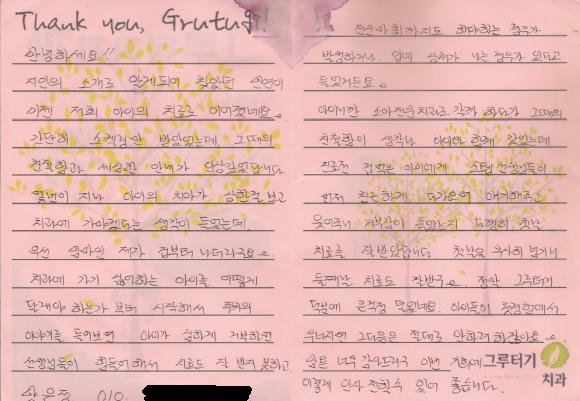 Thank you, Grutugi!
안녕하세요!!
지인의 소개로 알게되어 찾았던 인연이
이젠 저희 아이의 치료로 이어졌네요.
간단히 스케링만 받았었는데 그때의
친절함과 세심한 안내가 인상깊었답니다
몇년이 지나 아이의 치아가 상한걸 보고
치과에 가야겠다는 생각이 들었는데
우선 엄마인 제가 겁부터 나더라구요.
치과에 가기 싫어하는 아이를 어떻게
달래야 하는가 부터 시작해서 주위의
이야기를 들어보면 아이가 심하게 거부하면
선생님들이 힘들어해서 치료도 잘 받지 못하고,
010.
전신마취까지도 해야하는 경우가
발생하거나, 입에 상처가 나는 경우가 있다고
들었거든요.
어린이 소아전문치과로 갈까 하다가 그때의
친절함이 생각나 아이와 함께 찾았는데
진료전 겁먹은 아이에게 스텝 선생님들이
먼저 친근하게 다가온 얘기해주고
웃어주니 거부감이 줄었는지 다행히 첫날
치료를 잘 받았답니다. 첫날을 무사히 넘기니
둘째날 치료도 잘받구. 정말 그루터기
덕분에 큰걱정 덜었네요. 아이들이 첫경험에서
무너지면 그다음은 절대로 안하려 하잖아요.
암튼 너무 감사드리구 이번 기회에
이렇게 인사 전할수 있어 좋습니다.
그루터기
치과